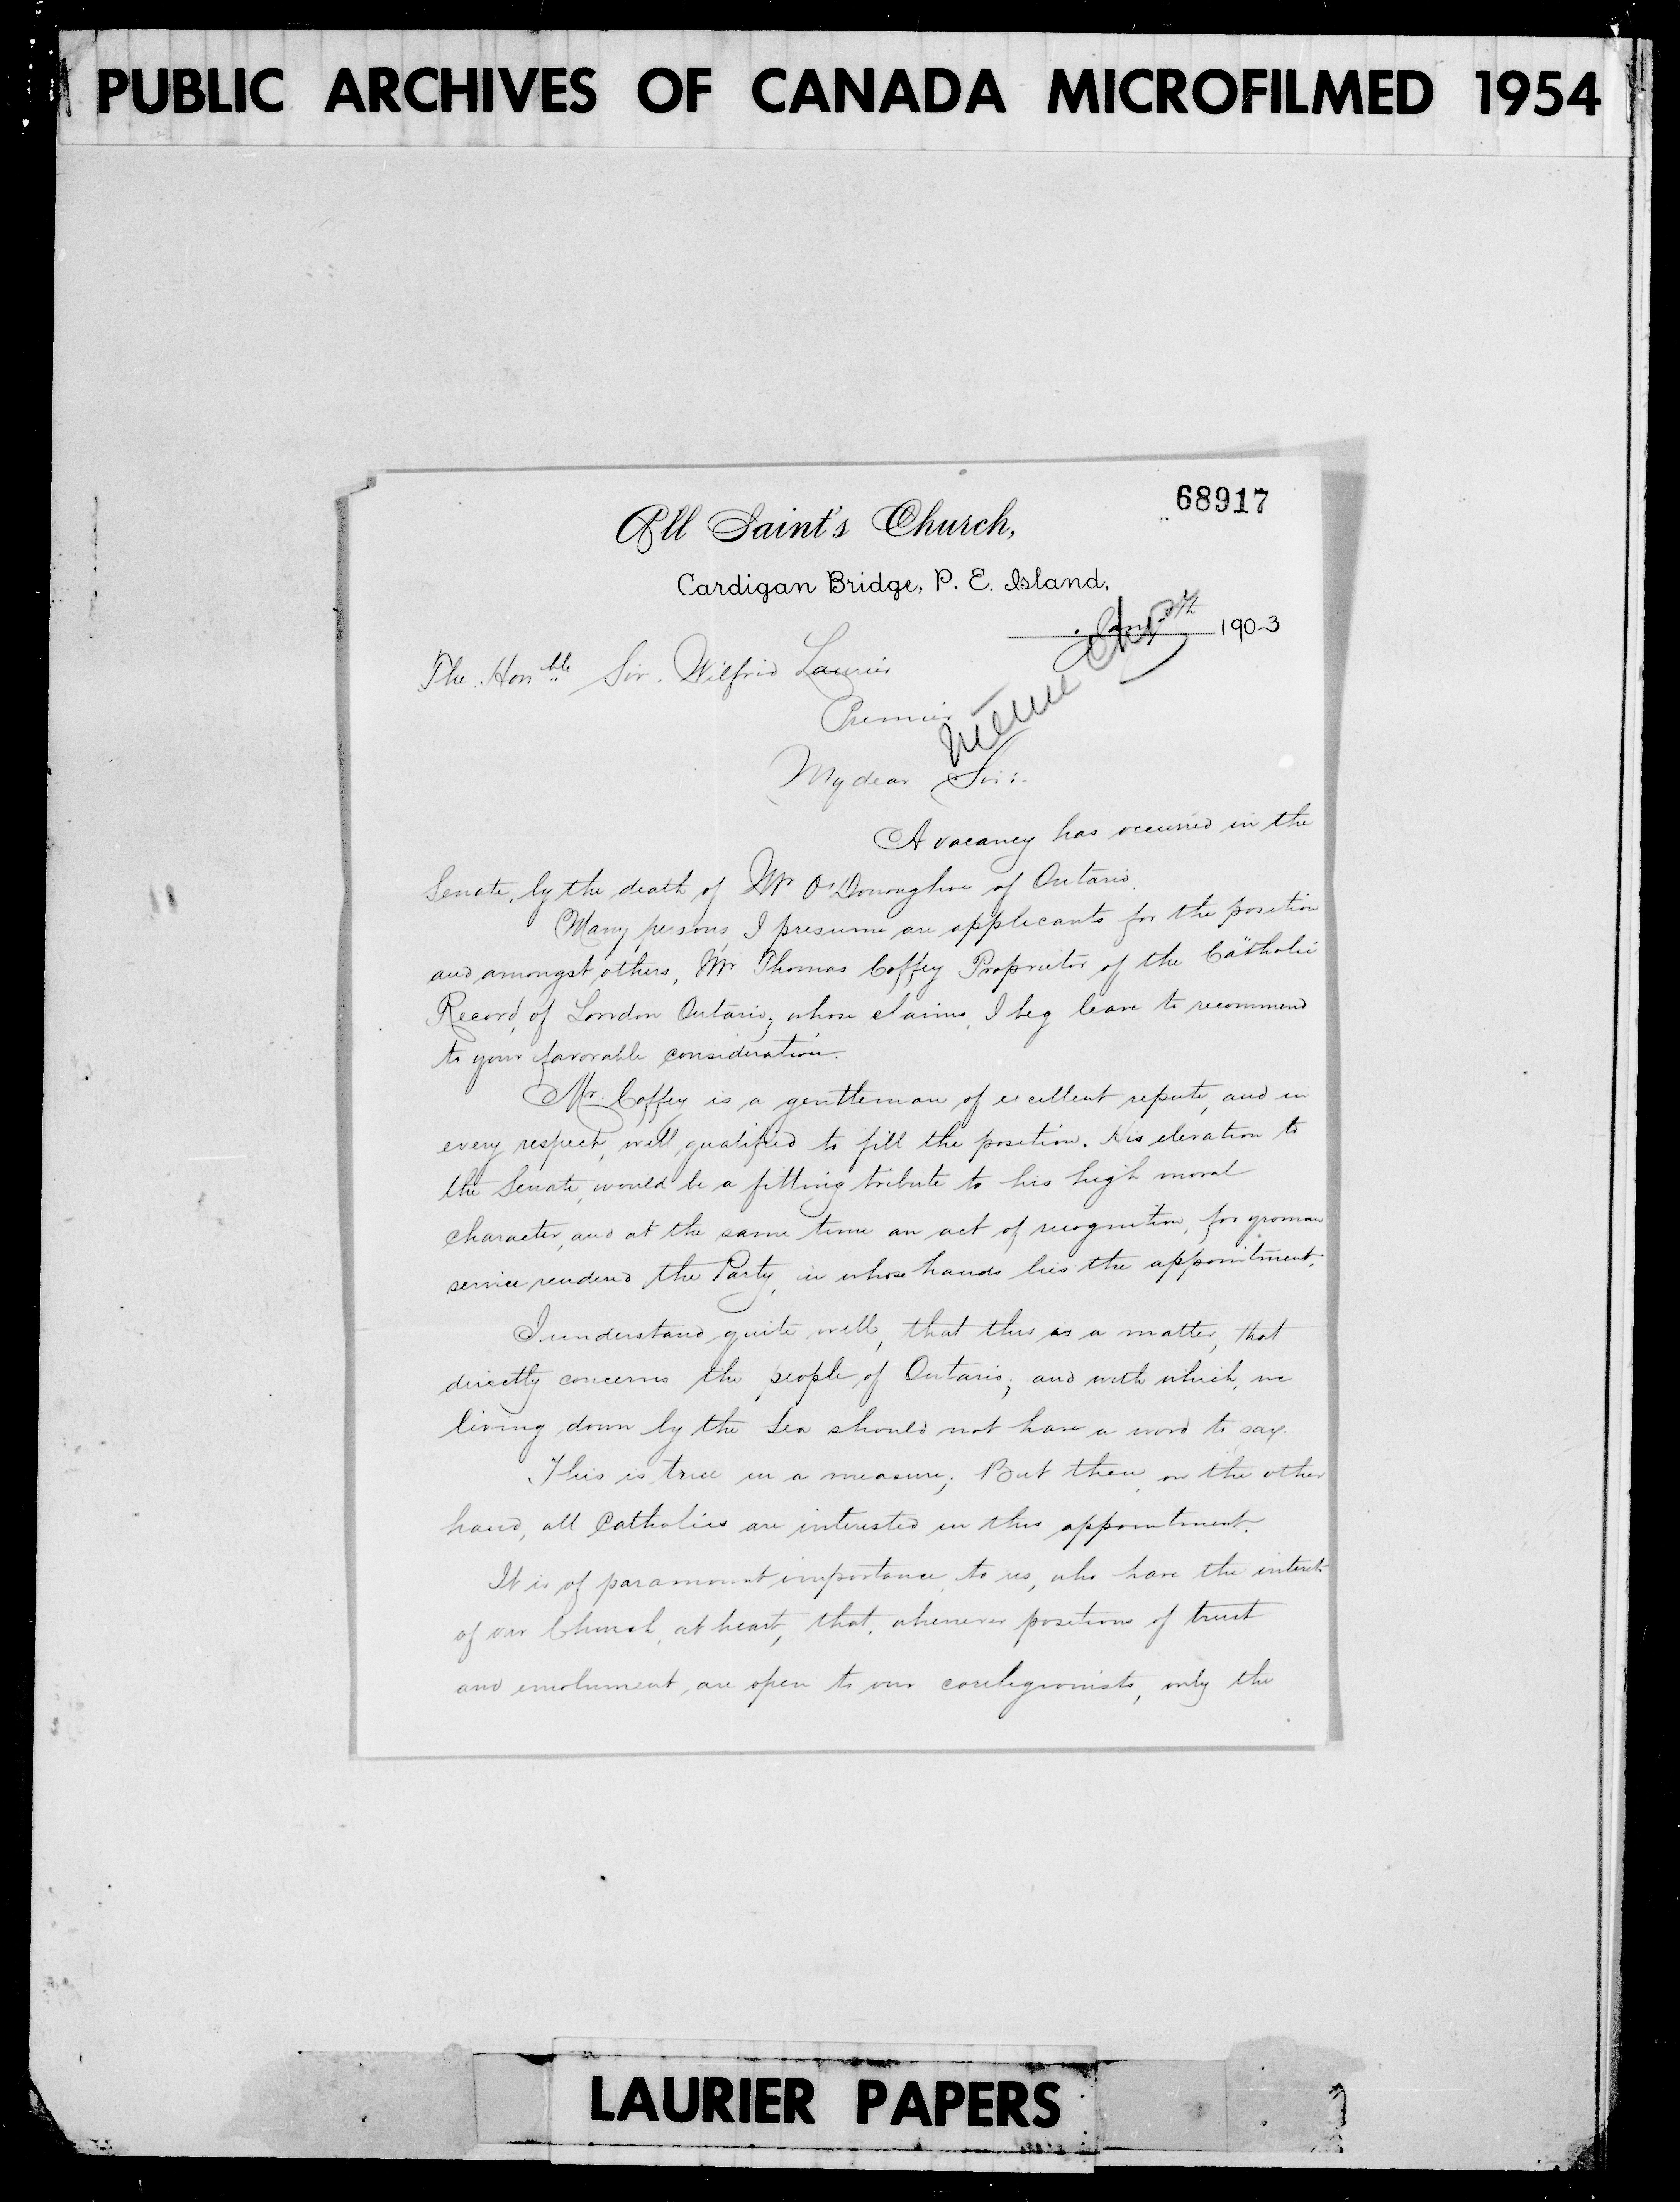 PUBLIC ARCHIVES OF CANADA MICROFILMED 1954
68917
All Saint's Church,
Cardigan Bridge, P. E. Island,
Jany 5th 1903
The Honble Sir. Wilfrid Laurier
Premier
My dear Sir:-
A vacancy has occurred in the
Senate, by the death of Mr O'Donoughoe of Ontario.
Many persons, I presume are applicants for the position
and amongst others, Mr Thomas Coffey Proprietor of the Catholic
Record, of London Ontario, whose claims, I beg leave to recommend
to your favorable consideration.
Mr. Coffey is a gentleman of excellent repute, and in
every respect, well qualified to fill the position. His elevation to
the Senate, would be a fitting tribute to his high moral
character, and at the same time an act of recognition, for yeoman
service rendered the Party, in whose hands lies the appointment.
I understand quite well, that this is a matter, that
directly concerns the people of Ontario; and with which, we
living down by the Sea should not have a word to say.
This is true in a measure; But then, on the other
hand, all Catholics are interested in this appointment.
It is of paramount importance, to us, who have the interest
of our Church, at heart, that, whenever positions of trust
and emolument, are open to our coreligionists, only the
LAURIER PAPERS